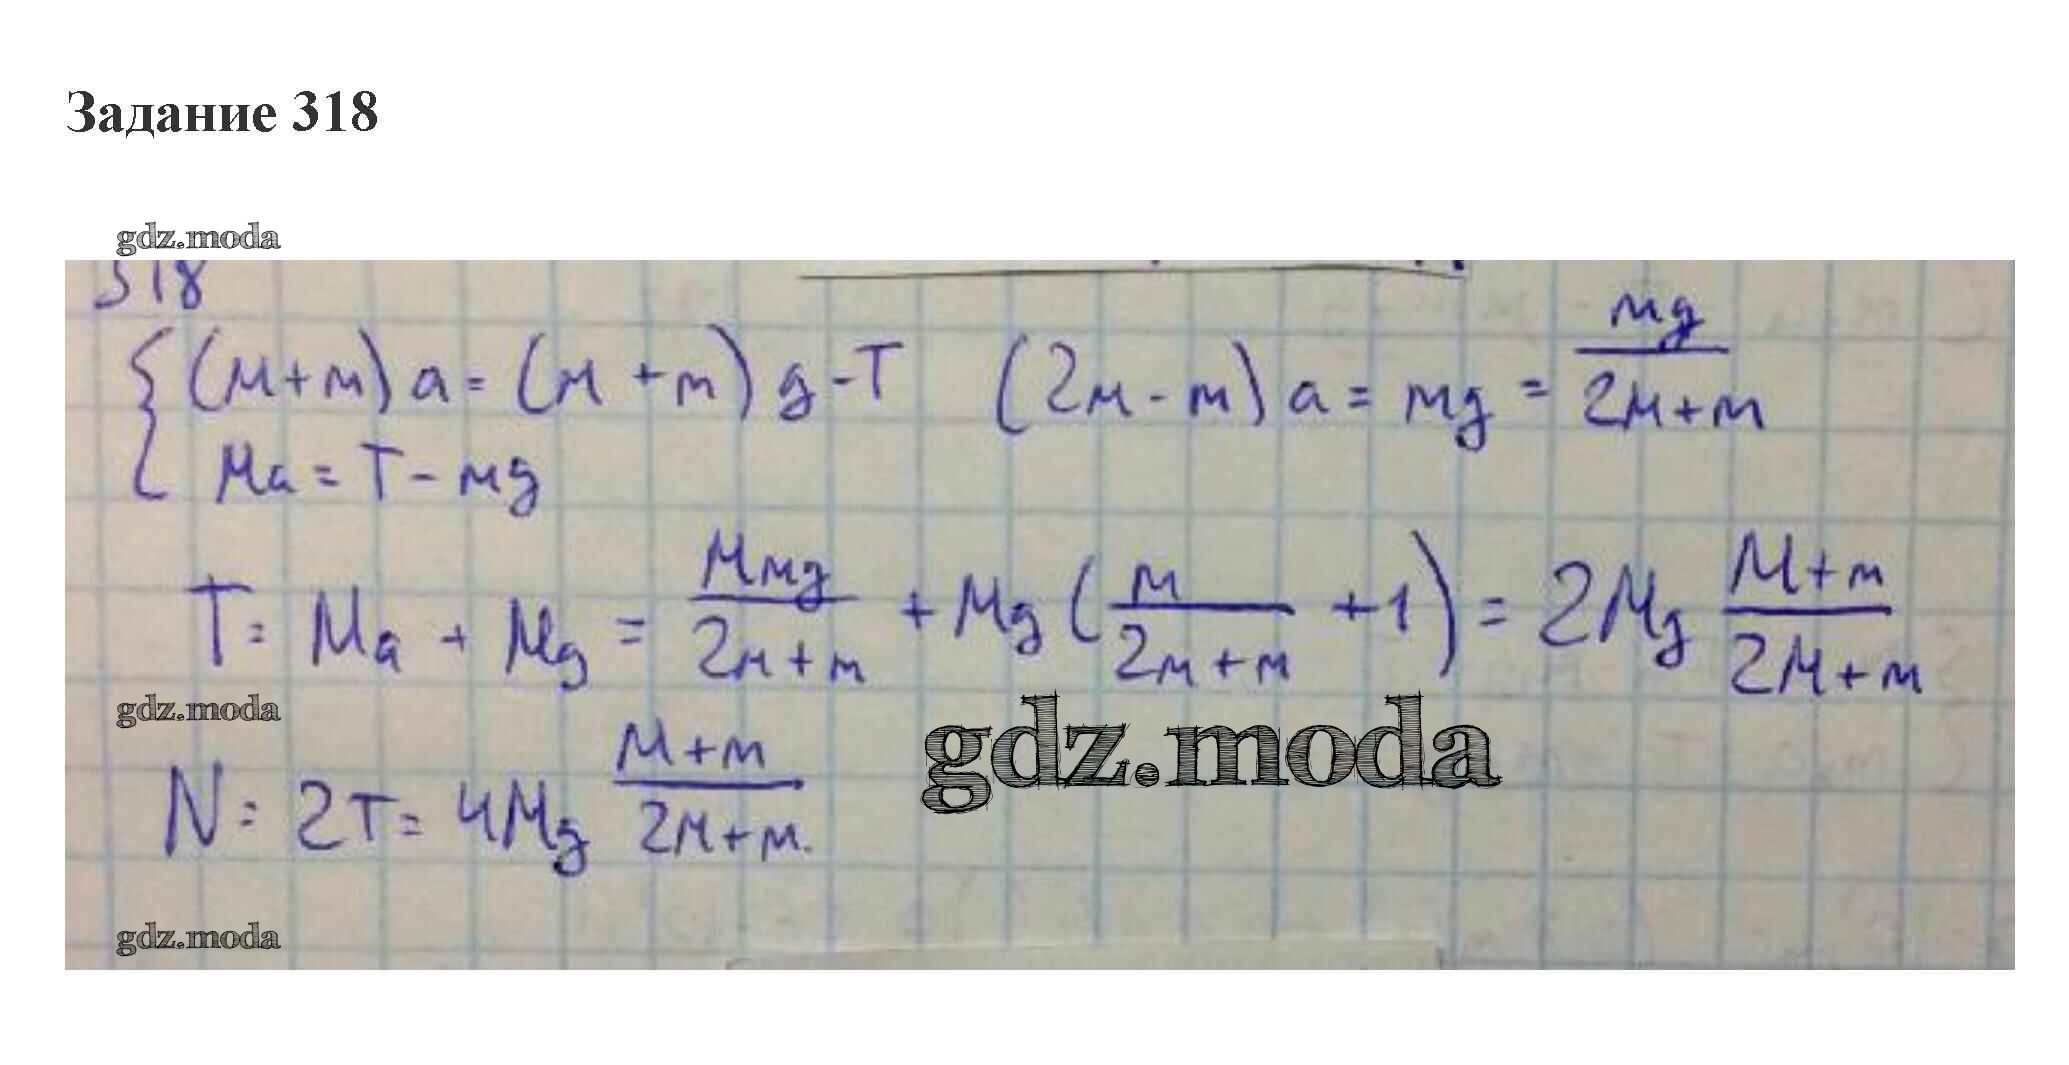 Задание 318
gdz.moda
318
(M+m)a = (M+m)g - T (2M - m)a = mg = mg/(2M+m)
Ma = T - mg
T = Ma + Mg = Mmg/(2M+m) + Mg(m/(2M+m) + 1) = 2Mg (M+m)/(2M+m)
gdz.moda
gdz.moda
N = 2T = 4Mg (M+m)/(2M+m).
gdz.moda